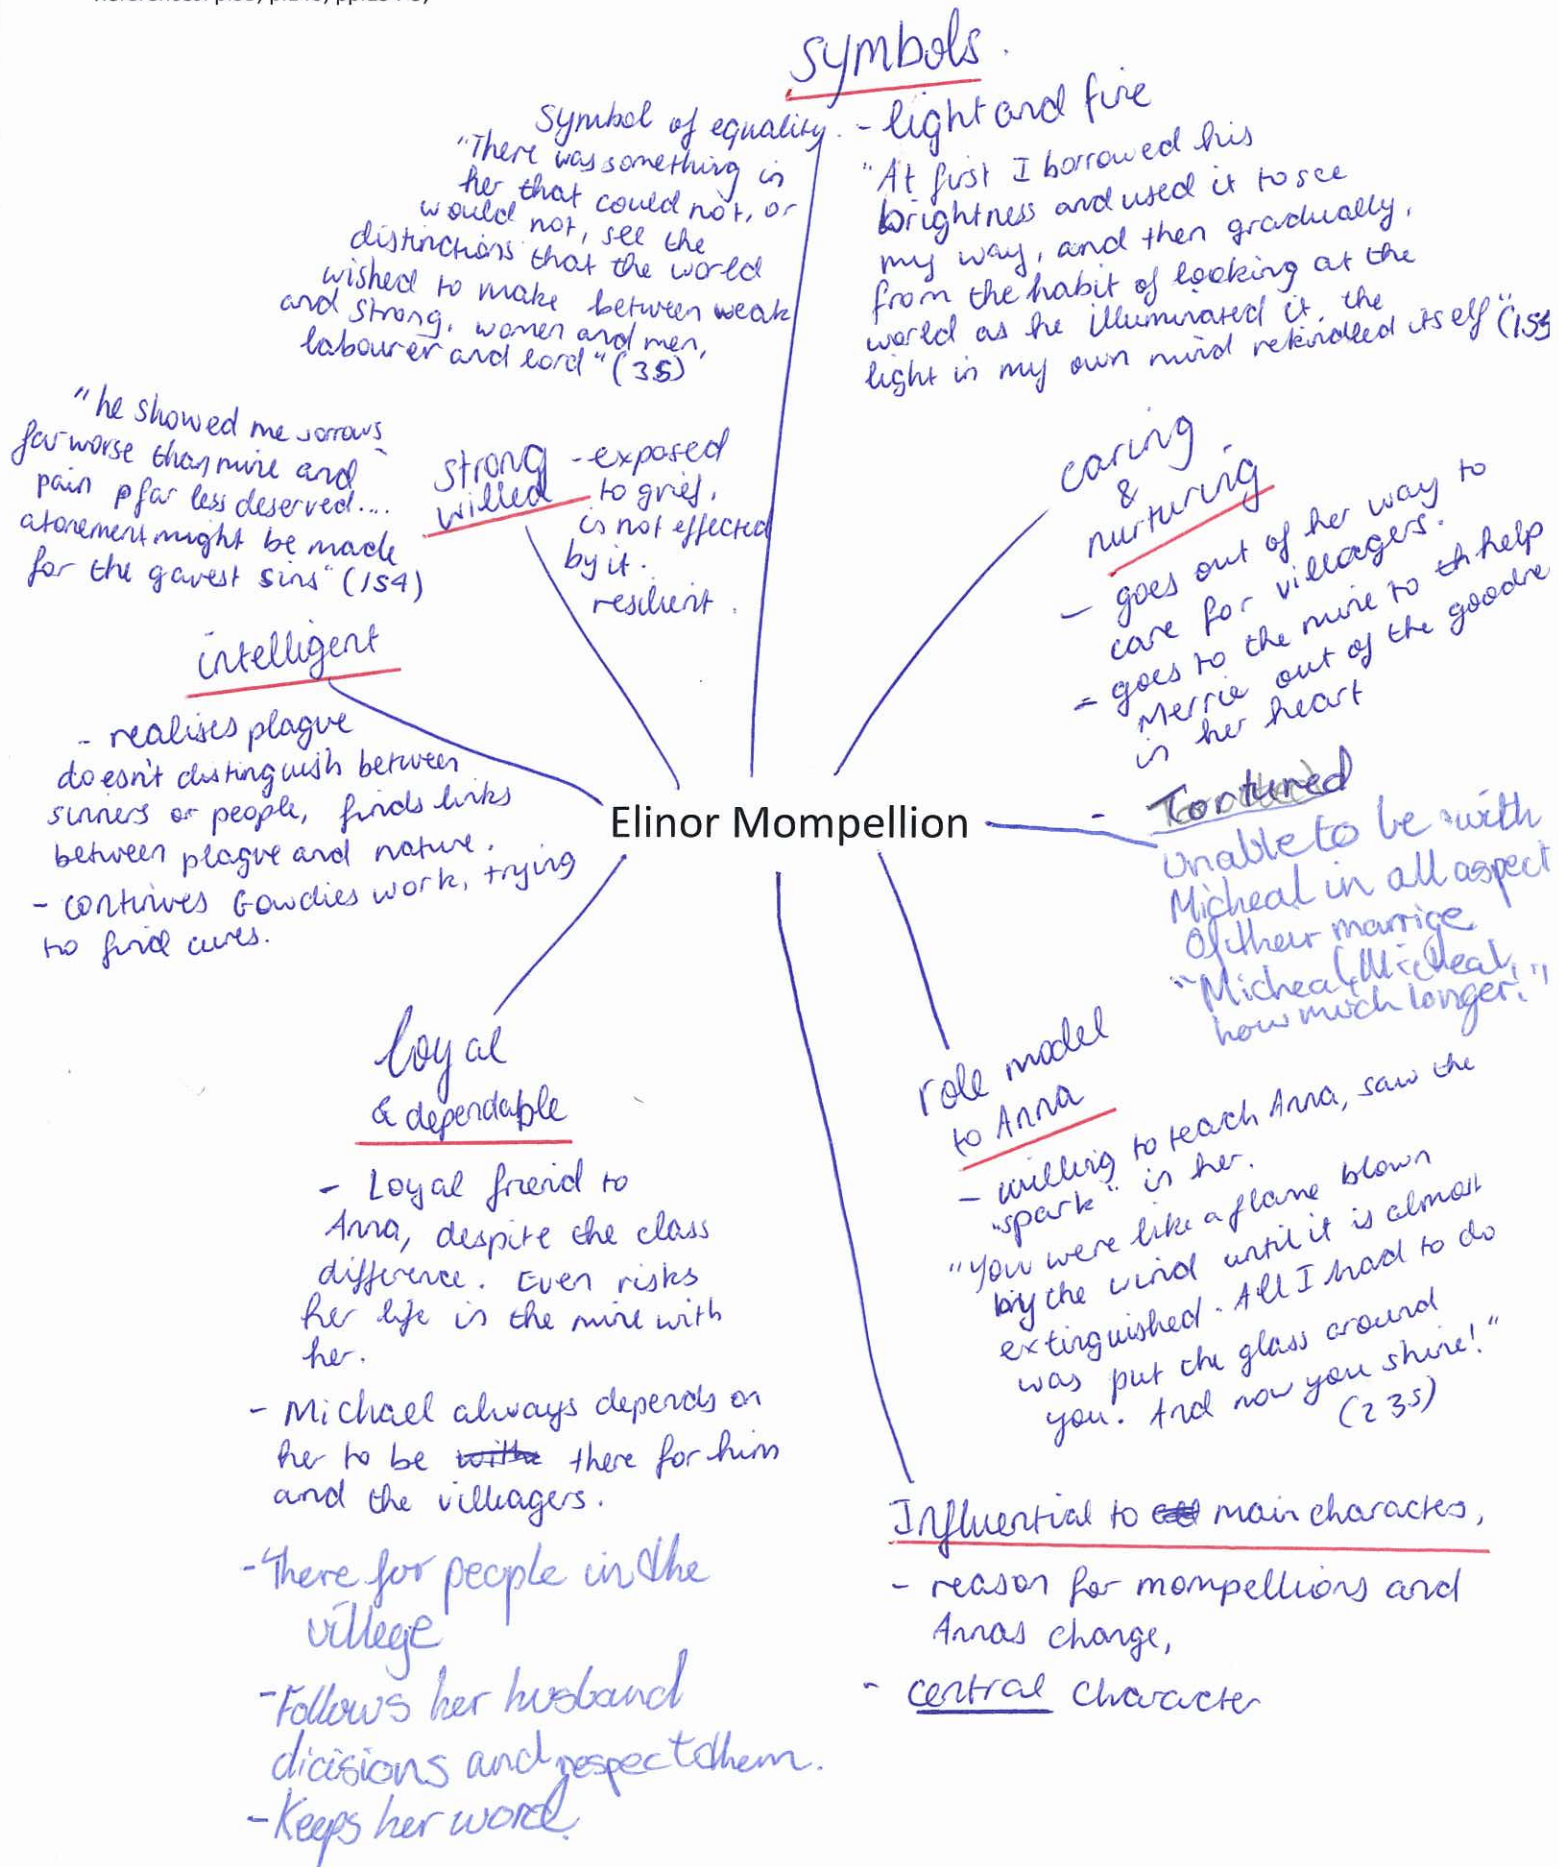 symbols.
Symbol of equality.
"There was something in
her that could not, or
would not, see the
distinctions that the world
wished to make between weak
and strong, women and men,
labourer and lord" (35)
- light and fire
"At first I borrowed his
brightness and used it to see
my way, and then gradually,
from the habit of looking at the
world as he illuminated it, the
light in my own mind rekindled itself"
"he showed me sorrows
far worse than mine and
pain far less deserved....
atonement might be made
for the gavest sins" (154)
strong
willed
- exposed
to grief,
is not effected
by it.
resilient.
caring
&
nurturing
- goes out of her way to
care for villagers.
- goes to the mine to help
Merrie out of the goodne
in her heart
intelligent
- realises plague
doesn't distinguish between
sinners or people, finds links
between plague and nature.
- continues Gowdies work, trying
to find cures.
Elinor Mompellion
- Tortured
Unable to be with
Micheal in all aspect
Of their marrige
"Micheal, Micheal,
how much longer!"
loyal
& dependable
- Loyal friend to
Anna, despite the class
difference. Even risks
her life in the mine with
her.
- Michael always depends on
her to be there for him
and the villagers.
- There for people in the
villege
- Follows her husband
dicisions and respect them.
- Keeps her word.
role model
to Anna
- willing to teach Anna, saw the
"spark" in her.
"You were like a flame blown
by the wind until it is almost
extinguished. All I had to do
was put the glass around
you. And now you shine!"
(235)
Influential to main characters,
- reason for mompellions and
Annas change,
- central character